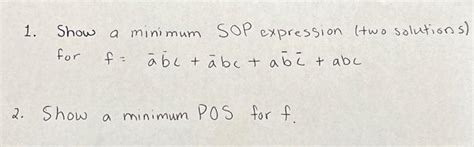 1. Show a minimum SOP expression (two solutions)
for f = a̅b̅c + a̅bc + ab̅c̅ + abc
2. Show a minimum POS for f.